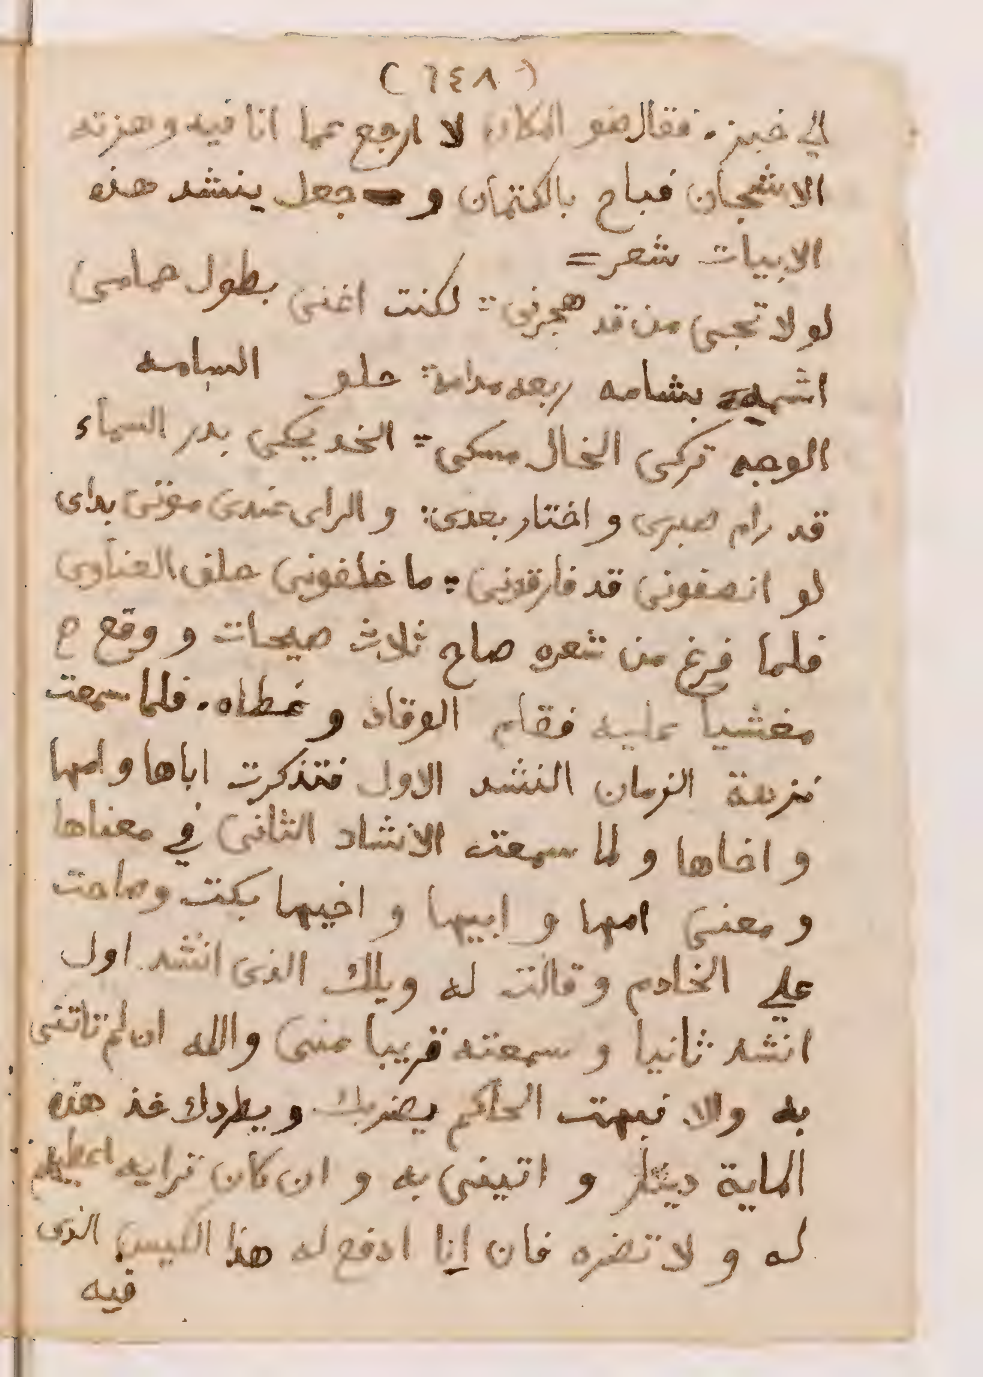 (٦٤٨)
لي خبز. فقال ضو المكان لا ارجع عما انا فيه وهزته
الاشجان فباح بالكتمان و جعل ينشد هذه
الابيات شعر =
لو لا تجى من قد هجرنى : لكنت اغنى بطول حمامى
بشامه ربعه مدامة : حلو
الوجه تركى الخال مسكى : الخد يحكى بدر السمآء
قد رام صبرى و اختار بعدى : و الراى عندى موتى بداى
لو انصفونى قد فارقونى : ما خلفونى حلف العناوى
فلما فرغ من شعره صاح ثلاث صيحات و وقع م
مغشيا عليه فقام الوقاد و غطاه. فلما سمعت
نزهة الزمان النشد الاول فتذكرت اباها و امها
و اخاها و لما سمعت الانشاد الثانى في معناها
و معنى امها و ابيها و اخيها بكت و صاحت
علي الخادم و قالت له ويلك الذى انشد اول
انشد ثانيا و سمعته قريبا منى والله ان لم تاتنى
به والا نبهت الحاكم يضربك و يطردك خذ هذه
الماية دينار و اتينى به و ان كان ترايه اعطيهم
له و لا تضره فان انا ادفع له هذا الكيس الذى
فيه